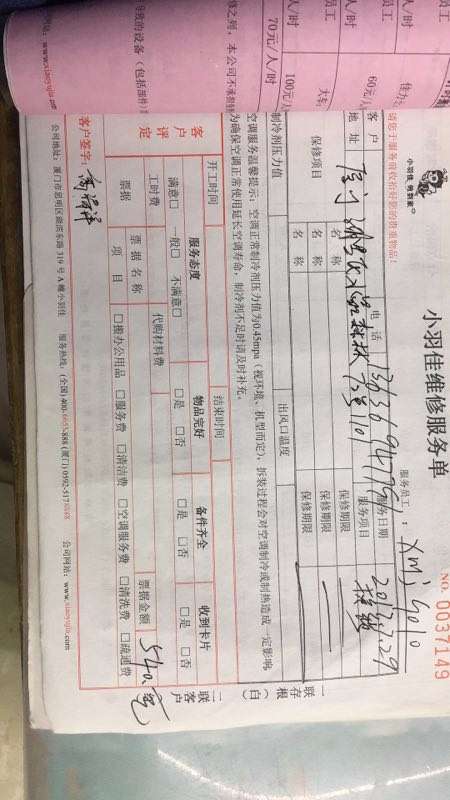 员工
人/时
70元/人/时
100元/人
60元/人
大车
小羽佳 劳到家
小羽佳维修服务单
NO. 0037149
请您于服务前收拾好您的贵重物品!
服务员工:xmj 4010
客户
电话
服务日期 2017.7.29
地址
服务项目
保修项目
名称
保修期限
名称
保修期限
名称
保修期限
制冷剂压力值
出风口温度
空调服务温馨提示:空调正常制冷剂压力值为0.45mpa(视环境、机型而定),拆装过程会对空调制冷或制热造成一定影响
为确保空调正常使用延长空调寿命,制冷剂不足时请及时补充。
开工时间
结束时间
客户评定
服务态度
物品完好
备件齐全
收到卡片
满意□ 一般□ 不满意□
□是 □否
□是 □否
□是 □否
工时费
代购材料费
票据金额 540元
票据
票据名称
项目
□搬办公用品 □服务费 □清洁费 □空调服务费 □清洗费 □疏通费
客户签字:
公司地址:厦门市思明区 319号A幢小羽佳 服务热线:(全国)400-6655-888 (厦门)0592-517 公司网站:www.xiaoyujia.com
一联存根(白)
二联客户
www.xiaoyujia.com